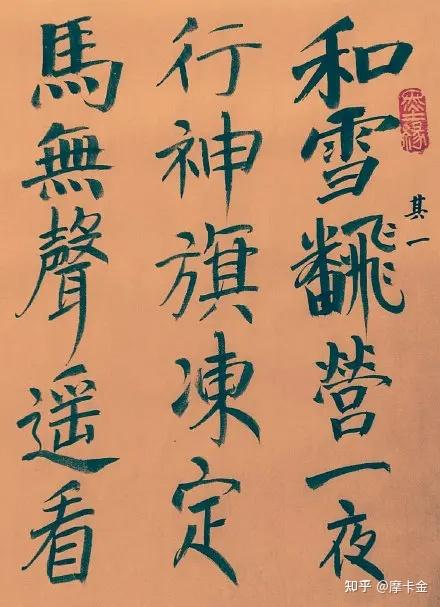 和雪飜營一夜
其一
行神旗凍定
馬無聲遥看
知乎 @摩卡金